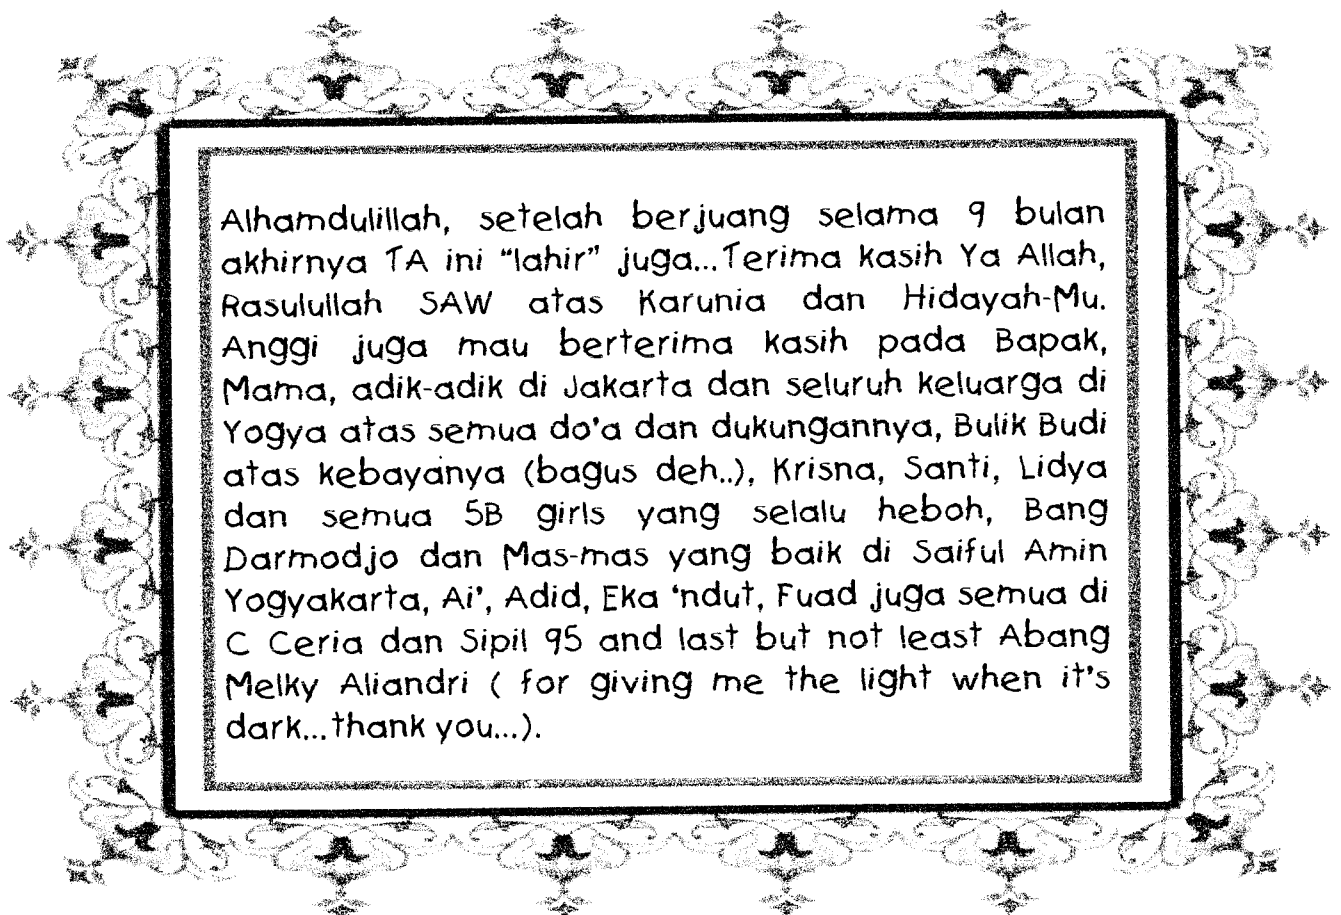 Alhamdulillah, setelah berjuang selama 9 bulan
akhirnya TA ini “lahir” juga...Terima kasih Ya Allah,
Rasulullah SAW atas Karunia dan Hidayah-Mu.
Anggi juga mau berterima kasih pada Bapak,
Mama, adik-adik di Jakarta dan seluruh keluarga di
Yogya atas semua do'a dan dukungannya, Bulik Budi
atas kebayanya (bagus deh..), Krisna, Santi, Lidya
dan semua 5B girls yang selalu heboh, Bang
Darmodjo dan Mas-mas yang baik di Saiful Amin
Yogyakarta, Ai', Adid, Eka 'ndut, Fuad juga semua di
C Ceria dan Sipil 95 and last but not least Abang
Melky Aliandri ( for giving me the light when it's
dark...thank you...).